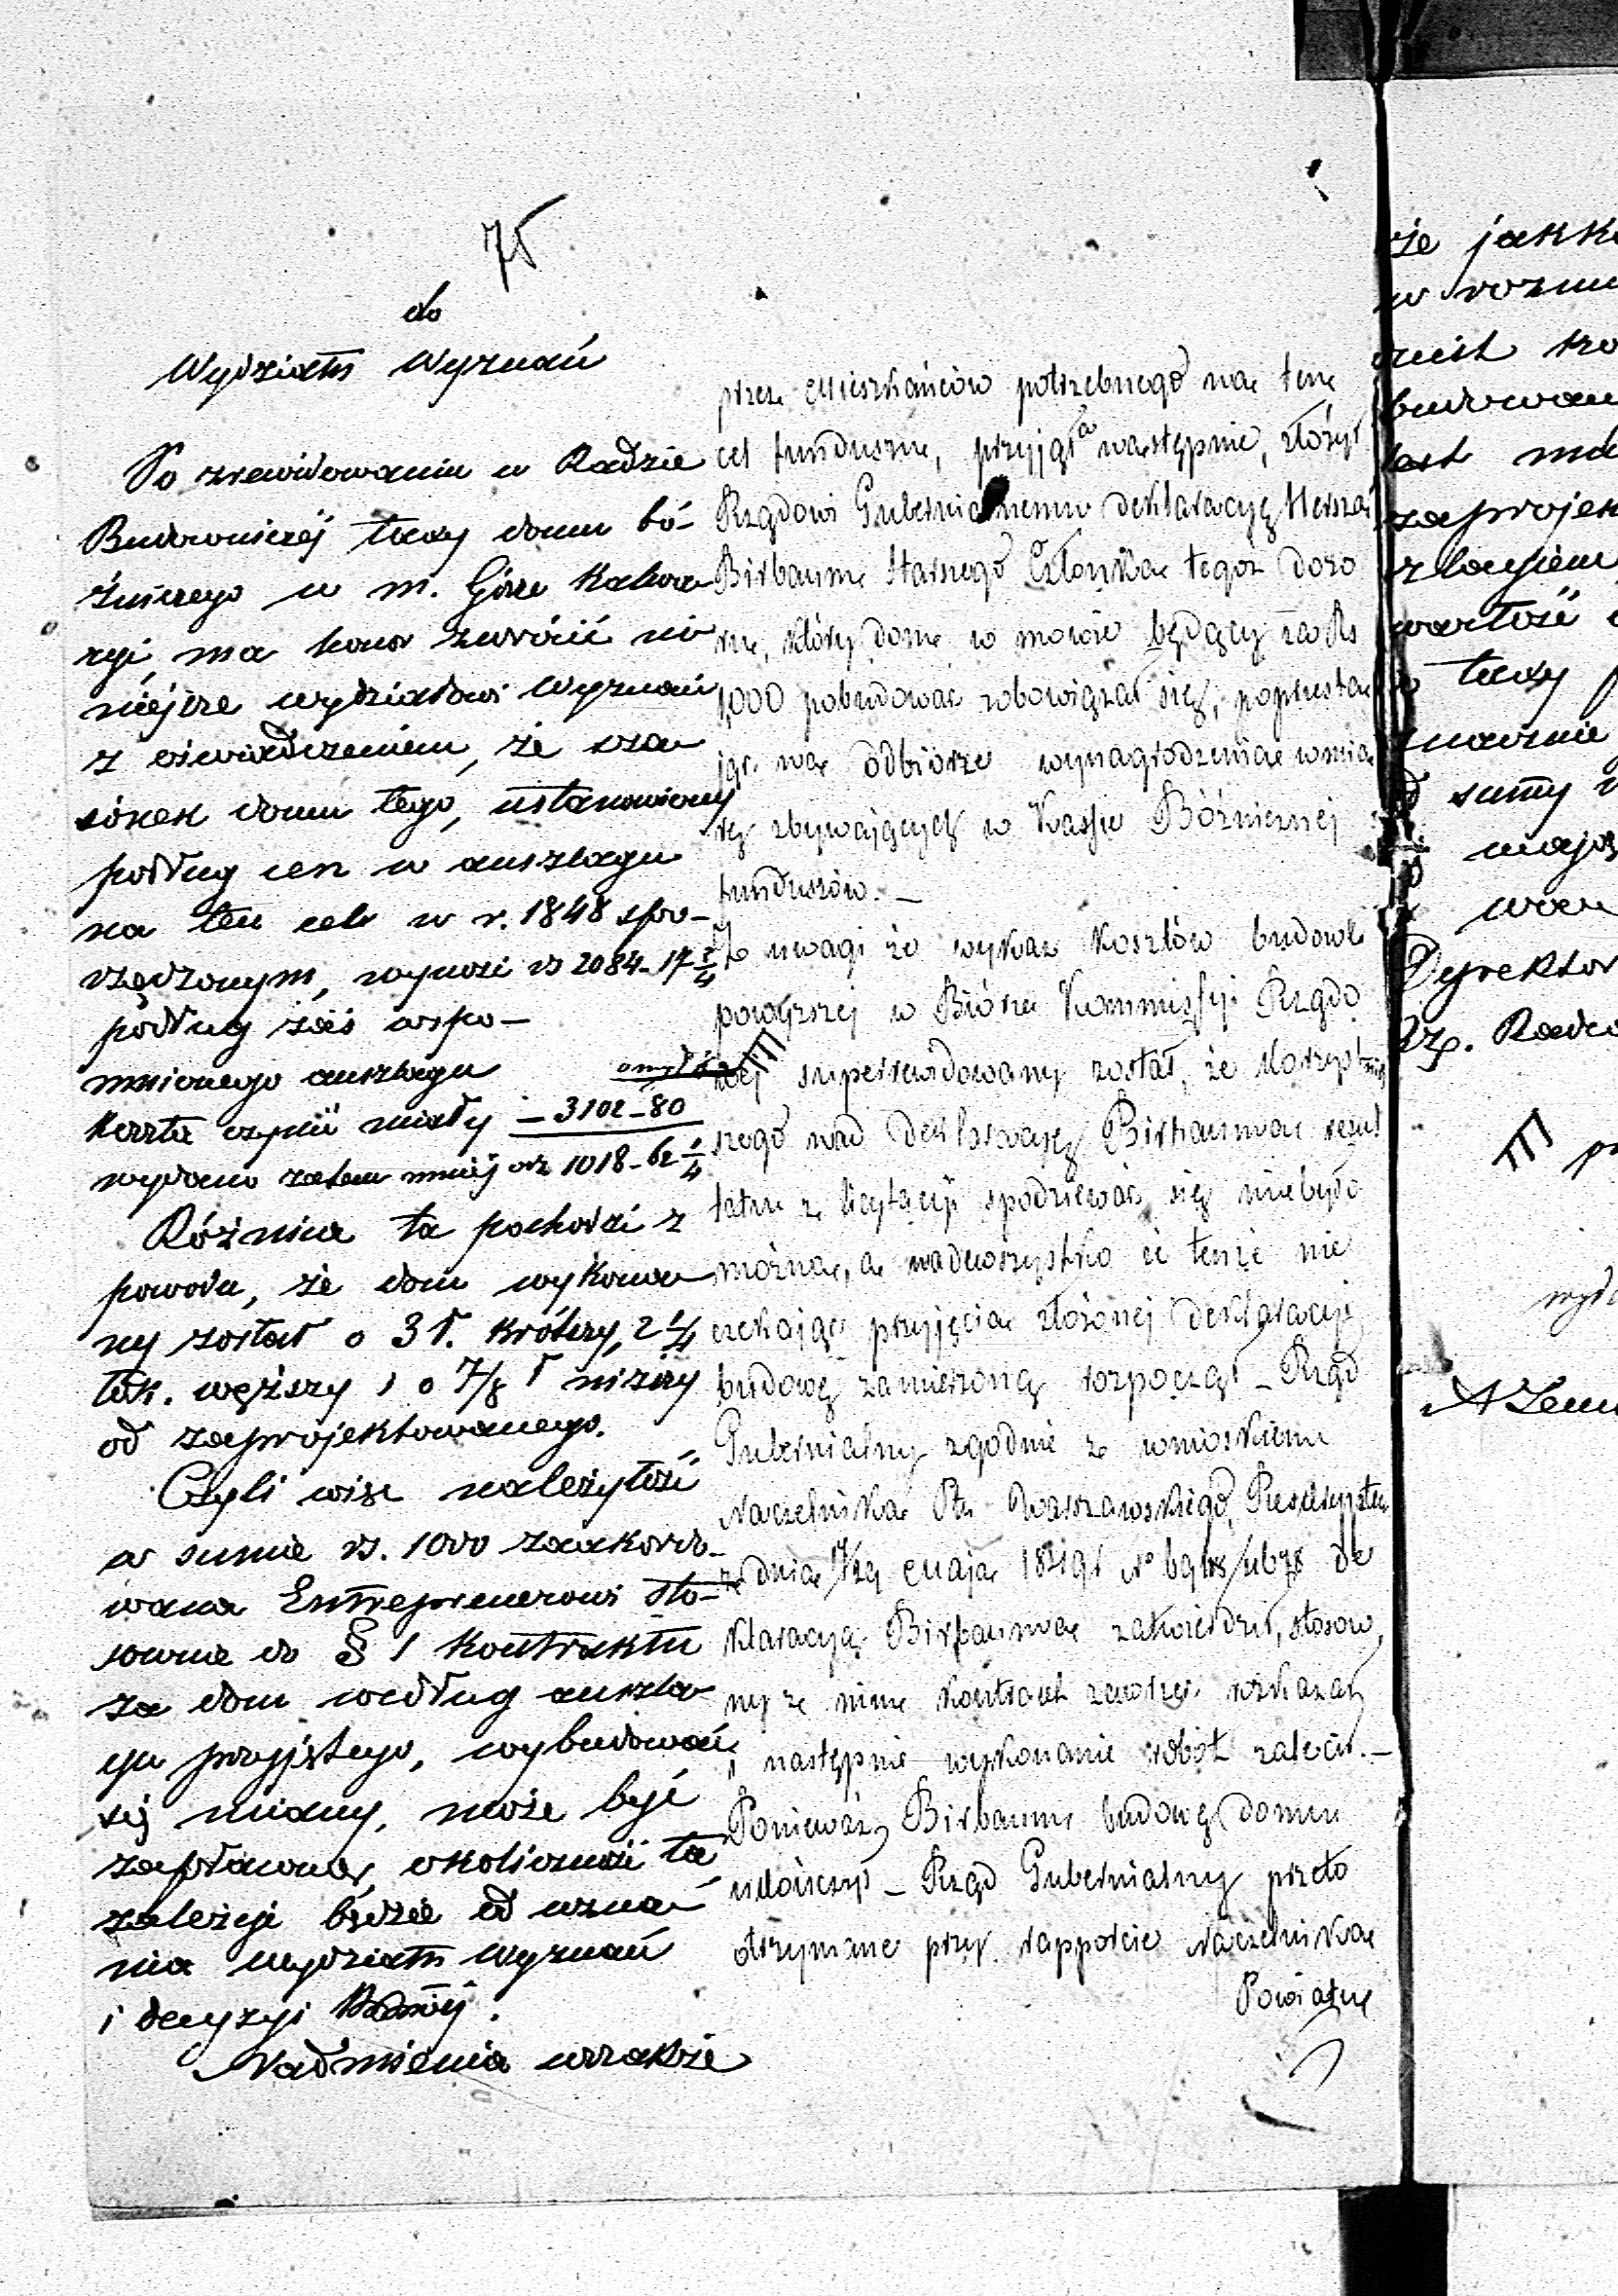 75
do
Wydziału Wyznań
Po zrewidowaniu w Radzie
Budowniczéj taxy domu bó-
żniczego w m. Górze Kalwa
ryi, ma honor zwrócić ni
niejsze wydziałowi Wyznań
z oświadczeniem, że sza
cunek domu tego, ustanowiony
podług cen w anszlagu
na ten cel w r. 1848 spo-
rządzonym, wynosi rs 2084-17 3/4
podług zaś wspo-
mnionego anszlagu
koszta czynić miały – 3102-80
wydano zatem mniej rs 1018-62 1/4
Różnica ta pochodzi z
powodu, że dom wykona
ny został o 3 ł. krótszy, 2 1/4
łok. węższy i o 7/8 ł niższy
od zaprojektowanego.
Czyli więc należytość
w summie rs. 1000 zaakordo-
wana Entreprenerowi sto-
sownie do § 1 Kontraktu
za dom według anszla
gu przyjętego, wybudować
się miany, może być
zapłacona, okoliczność ta
zależeć będzie od uzna-
nia wydziału Wyznań
i decyzyi
Nadmienia wszakże
przez Mieszkańców potrzebnego na ten
cel funduszu, przyjął a następnie, złożył
Rządowi Gubernialnemu deklaracyę Herszka
Birbaum Starszego Członka tegoż Dozo
ru, który dom w mowie będący za Rs
1,000 pobudować zobowiązał się, poprzesta
jąc na odbiorze wynagrodzenia w mia
rę zbywających w Kassie Bóżniczej
funduszów. –
Z uwagi że wykaz kosztów budowli
powyższej w Biórze Kommissyi Rządo
wej superrewidowany został, że korzystniej
szego nad deklaracyę Birbauma rezul
tatu z licytacyi spodziewać się niebyło
można, a nadewszystko iż tenże nie
czekając przyjęcia złożonej deklaracyi
budowę zamierzoną rozpoczął – Rząd
Gubernialny zgodnie z wnioskiem
Naczelnika Ptu Warszawskiego, Reskryptem
z dnia Maja de
klaracyą Birbauma zatwierdził, stosow
ny z nim kontrakt zawrzeć rozkazał
i następnie wykonanie robót zalecił. –
Ponieważ Birbaum budowę domu
ukończył – Rząd Gubernialny przeto
otrzymane przy rapporcie Naczelnika
Powiatu
że jakk
w rozm
budowan
zaprojek
wartość
taxy p
summy
Dyrektor